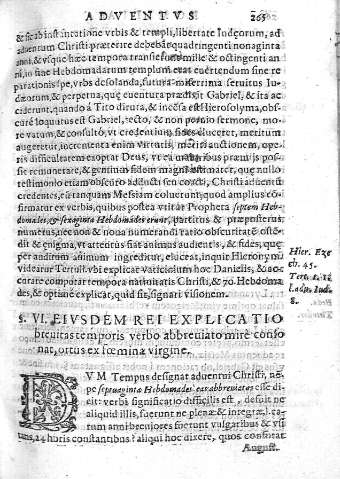 ADVENTVS 265
& sic ab instauratione vrbis & templi, libertate Iudæorum, ad
aduentum Christi præterire debebāt quadringenti nonaginta
anni, & vsque hæc tempora transie sunt mille & octingenti an
ni, in fine Hebdomadarum templum erat euertendum sine re
parationis spe, vrbs desolanda, futura miserrima seruitus Iu-
dæorum, & perpetua, quę cuentura prædixit Gabriel, & ita ac
cidit, quando à Tito diruta, & incēsa est Hierosolyma, obs-
curè loquutus est Gabriel, tecto, & non sermone, mo
re vatum, & consultò, vt credentium fides eluceret, meritum
augeretur, incrementa enim virtutis, auctionem, ope
ris difficultatem exoptat Deus, vt ea præmijs pos
sit remunerare, & gentium fidem mater, que nullo
testimonio etiam obscuro adducti sed Christi aduentū
credentes, eū tanquam Messiam coluerunt, quod amplius cō-
firmatur ex verbis, quibus postea vtitur Propheta septem Heb-
domades, & sexaginta Hebdomades erunt, partitus & præposterus
numerus, nec non & noua numerandi ratio obscuritatē ostē-
dit & enigma, vt attentus fiat animus audientis, & fides, quę
per auditum animum ingreditur, eluceat, inquit Hierony mº
videatur Tertull. vbi explicat Vaticinium hoc Danielis, & ac-
curate computat tempora natiuitatis Christi, & 70. Hebdoma
des, & optimè explicat, quid sit, signari visionem.
Hier. Eze
ch. 45.
Tert. l.
l. adu. Iud.
8.
§. VI. EIVSDEM REI EXPLICATIO
breuitas temporis verbo abbreuiato mirè conso
nat, ortus ex fœmina virgine.
CVM Tempus designat aduentui Christi, nē-
pe septuaginta Hebdomades esse abbreuiatas esse di-
cit: verbi significatio difficilis est, desuit ne
aliquid illis, fuerunt ne plenæ & integræ? tan
tum an breuiores fuerunt vulgaribus & vsi
tatis, 24 horis constantibus? aliqui hoc dixere, quos constitat
August.